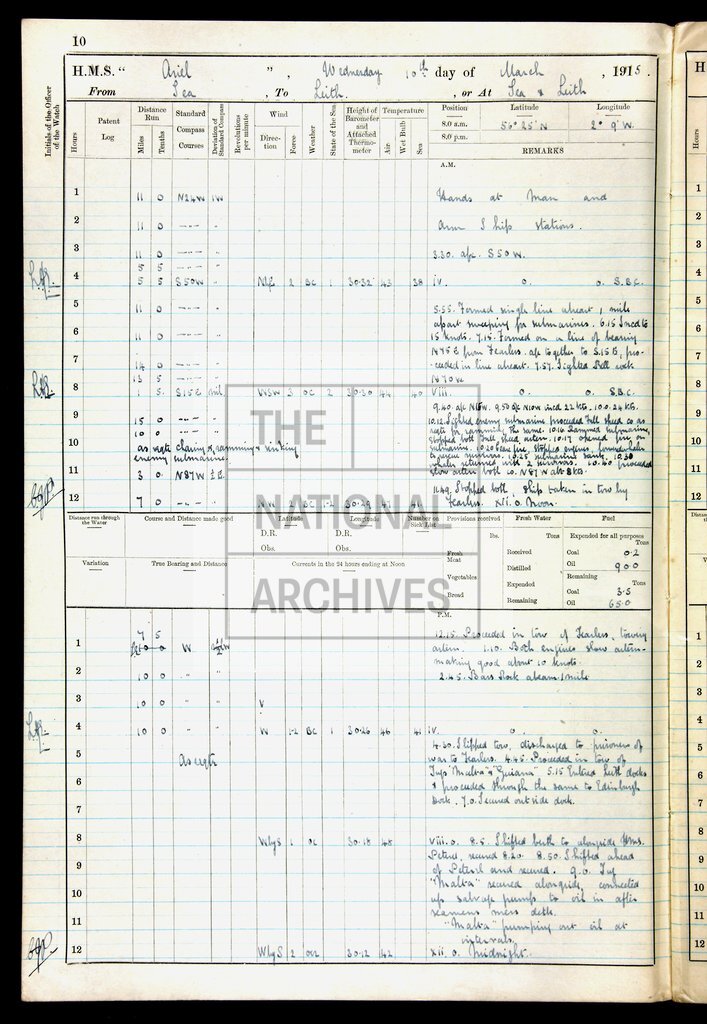 10
H.M.S. " Ariel " , Wednesday 10th day of March , 1915.
From Sea , To Leith. , or At Sea & Leith
Initials of the Officer of the Watch
Hours
Patent Log
Distance Run
Miles
Tenths
Standard Compass Courses
Deviation of Standard Compass
Revolutions per minute
Wind
Direction
Force
Weather
State of the Sea
Height of Barometer and Attached Thermometer
Temperature
Air
Wet Bulb
Sea
Position
Latitude
Longitude
8.0 a.m. 56° 25' N 2° 9' W.
8.0 p.m.
REMARKS
A.M.
1 11 0 N24W 1W Hands at Man and
2 11 0 Arm Ship stations.
3 11 0 3.30. a/c. S50W.
5 5
4 5 5 S50W 2 BC 1 30.32 43 38 IV. 0. 0. S.B.C.
5 11 0 5.55. Formed single line abreast 1 mile
apart sweeping for submarines. 6.15 Inced to
6 11 0 15 knots. 7.15. Formed on a line of bearing
N75E from Fearless. a/c together to S15E, pro-
7 14 0 ceeded in line abreast. 7.57. Sighted Bell rock
13 5 N70W
8 1 5 S15E nil WSW 3 OC 2 30.30 44 40 VIII. 0. 0. S.B.C.
9 15 0 9.40 a/c N15W. 9.50 a/c N10W inced 22 kts. 10.0. 24 kts.
10 0 10.12. Sighted enemy submarine proceeded full speed co. as
10 as reqte chasing & ramming & sinking reqte for ramming the same. 10.16 Rammed submarine,
enemy submarine. stopped both full speed astern. 10.17 opened fire on
submarine. 10.20 Cease fire, stopped engines, lowered whaler
to rescue survivors. 10.25 submarine sank. 10.38
11 3 0 N87W whaler returned with 2 survivors. 10.40 proceeded
slow astern both co. N87W at 8 kts.
12 7 0 NW 2 BC 1-2 30.29 41 11.49. Stopped both. Ship taken in tow by
Fearless. XII. 0. Noon.
Distance run through the Water
Course and Distance made good
Latitude
D.R.
Obs.
Longitude
D.R.
Obs.
Number on Sick List
Provisions received
lbs.
Fresh Meat
Vegetables
Bread
Fresh Water
Tons
Received
Distilled
Expended
Remaining
Fuel
Expended for all purposes
Tons
Coal 0.2
Oil 90.0
Remaining
Tons
Coal 3.5
Oil 65.0
Variation
True Bearing and Distance
Currents in the 24 hours ending at Noon
P.M.
7 5 12.15. Proceeded in tow of Fearless, towing
1 W astern. 1.10. Both engines slow astern-
making good about 10 knots.
2 10 0 2.45. Bass Rock abeam 1 mile
3 10 0
4 10 0 W 1-2 BC 1 30.26 46 41 IV. 0. 0.
5 As reqte 4.30. Slipped tow, discharged 10 prisoners of
war to Fearless. 4.45. Proceeded in tow of
6 Tugs "Malta" & "Guiana" 5.15 Entered Leith docks
& proceeded through the same to Edinburgh
7 Dock. 7.0. Secured outside dock.
8 WlyS 1 OC 30.18 48 VIII. 0. 8.5. Shifted berth to alongside Hms.
Petrel, secured 8.20 8.50. Shifted ahead
9 of Petrel and secured. 9.0. Tug
"Malta" secured alongside, connected
10 up salvage pump to oil in after
seamens mess deck.
11 "Malta" pumping out oil at
intervals.
12 WlyS 2 30.12 42 XII. 0. Midnight.
THE
NATIONAL
ARCHIVES